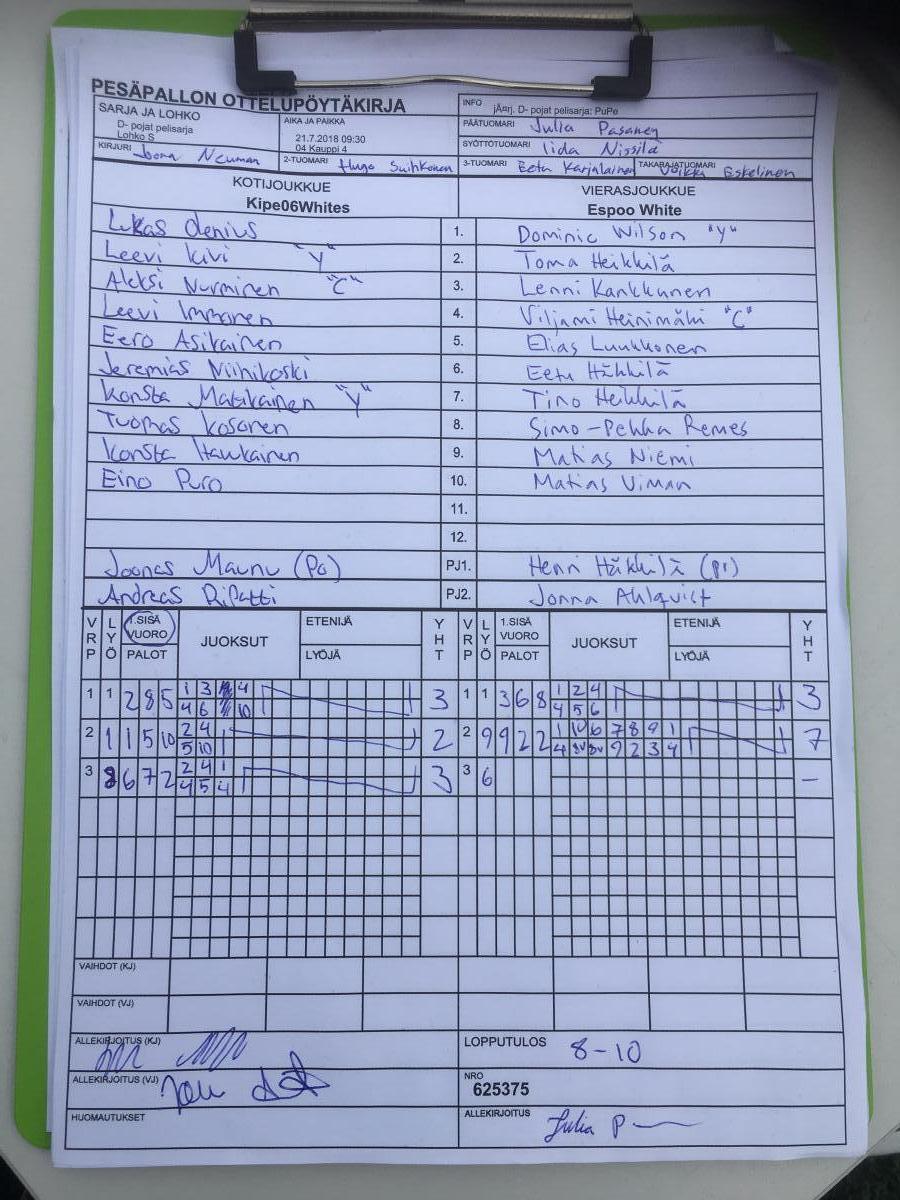 PESÄPALLON OTTELUPÖYTÄKIRJA
SARJA JA LOHKO
D- pojat pelisarja
Lohko S
AIKA JA PAIKKA
21.7.2018 09:30
04 Kauppi 4
INFO
jÃ¤rj. D- pojat pelisarja: PuPe
PÄÄTUOMARI Julia Pasanen
SYÖTTÖTUOMARI Iida Nissilä
KIRJURI Joona Neuman
2-TUOMARI Hugo Suihkonen
3-TUOMARI Eetu Karjalainen
TAKARAJATUOMARI Eskelinen
KOTIJOUKKUE
Kipe06Whites
VIERASJOUKKUE
Espoo White
Lukas denius 1. Dominic Wilson "Y"
Leevi kivi "Y" 2. Toma Heikkilä
Aleksi Nurminen "C" 3. Lenni Kankkunen
Leevi Immonen 4. Viljami Heinimäki "C"
Eero Asikainen 5. Elias Luukkonen
Jeremias Niinikoski 6. Eetu Häkkilä
Konsta Matikainen "Y" 7. Tino Heikkilä
Tuomas Kosonen 8. Simo-Pekka Remes
Konsta Haukainen 9. Matias Niemi
Eino Puro 10. Matias Viman
11.
12.
Joonas Maunu (Po) PJ1. Henri Häkkilä
Andreas Ripatti PJ2. Jonna Ahlqvist
VRP LYÖ 1.SISÄ VUORO PALOT JUOKSUT ETENIJÄ LYÖJÄ YHT VRP LYÖ 1.SISÄ VUORO PALOT JUOKSUT ETENIJÄ LYÖJÄ YHT
1 1 2 8 5 1 3 4 3 1 1 3 6 8 1 2 4 3
4 6 10 4 5 6
2 1 1 5 10 2 4 2 2 9 9 2 2 1 10 6 7 8 9 1 7
5 10 4 9 2 3 4
3 6 7 2 2 4 1 3 3 6 -
4 5 4
VAIHDOT (KJ)
VAIHDOT (VJ)
ALLEKIRJOITUS (KJ)
LOPPUTULOS 8-10
ALLEKIRJOITUS (VJ)
NRO
625375
HUOMAUTUKSET
ALLEKIRJOITUS Julia P